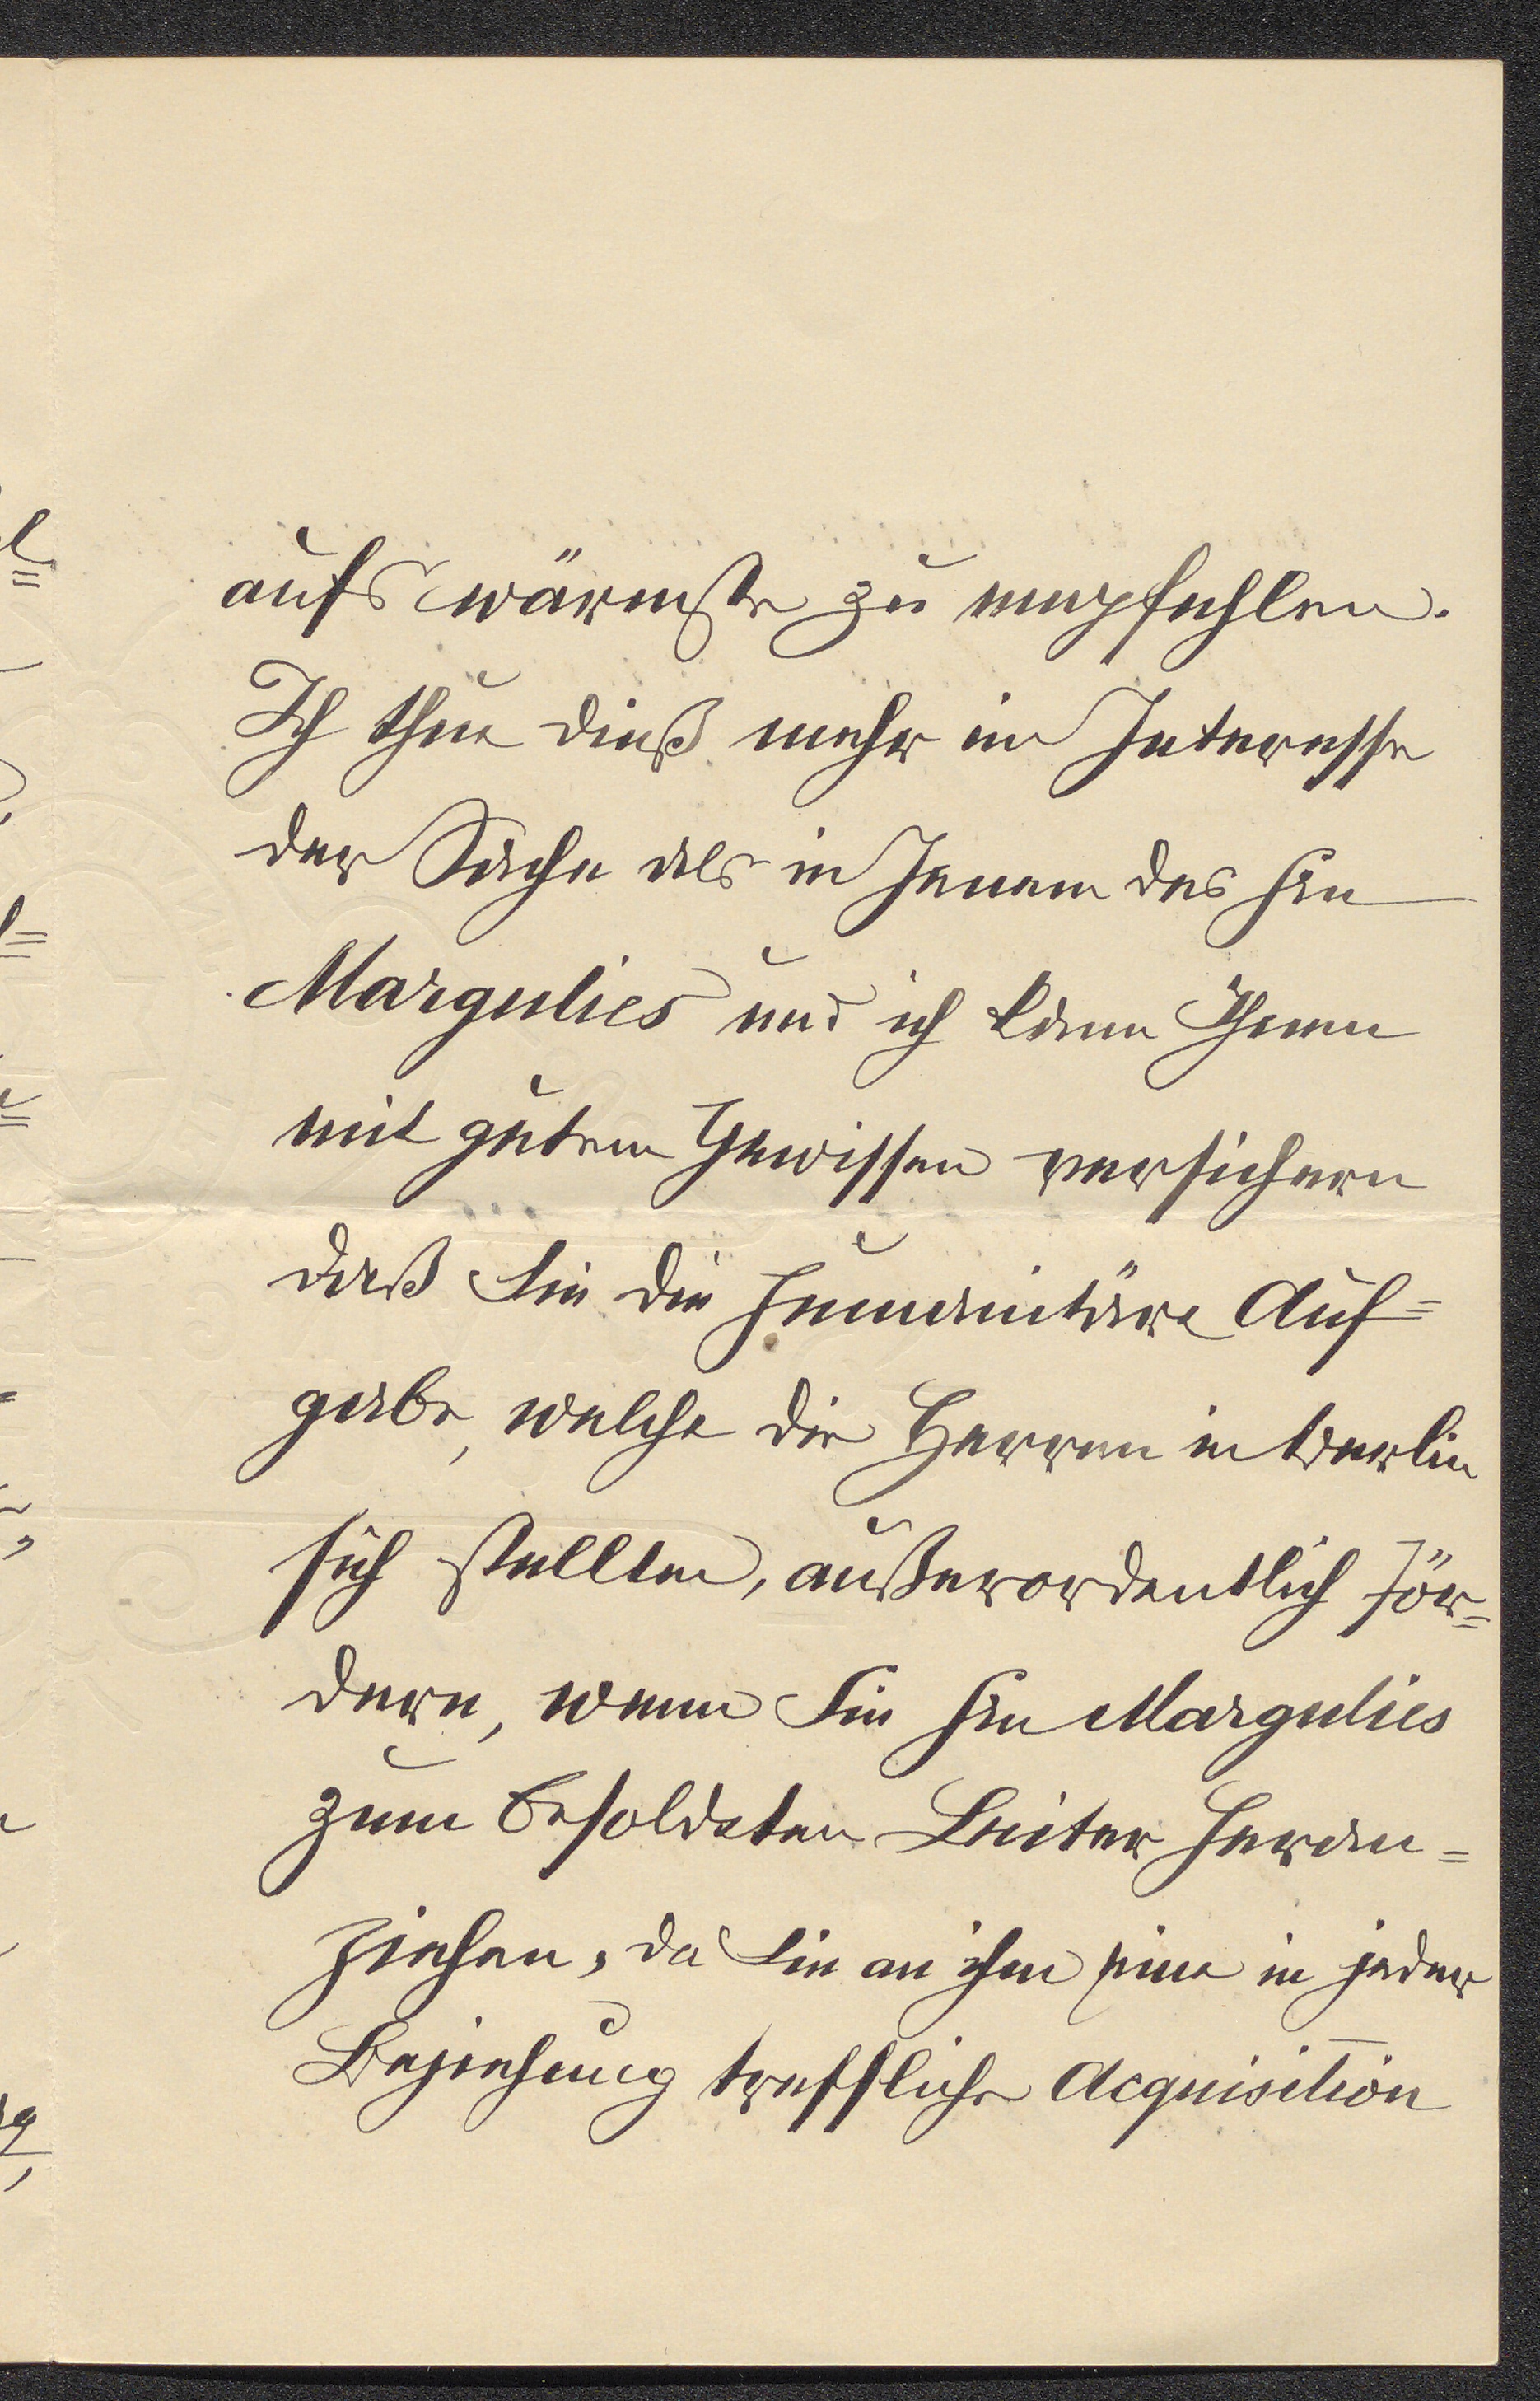 aufs wärmste zu empfehlen.
Ich thue dieß mehr im Interesse
der Sache als in Jenem des Hrn
Margulies und ich kann Ihnen
mit gutem Gewissen versichern
daß Sie die humanitäre Auf=
gabe, welche die Herren in Berlin
sich stellten, außerordentlich för=
dern, wenn Sie Hrn Margulies
zum besoldeten Leiter heran=
ziehen, da Sie an ihm eine in jeder
Beziehung treffliche Acquisition